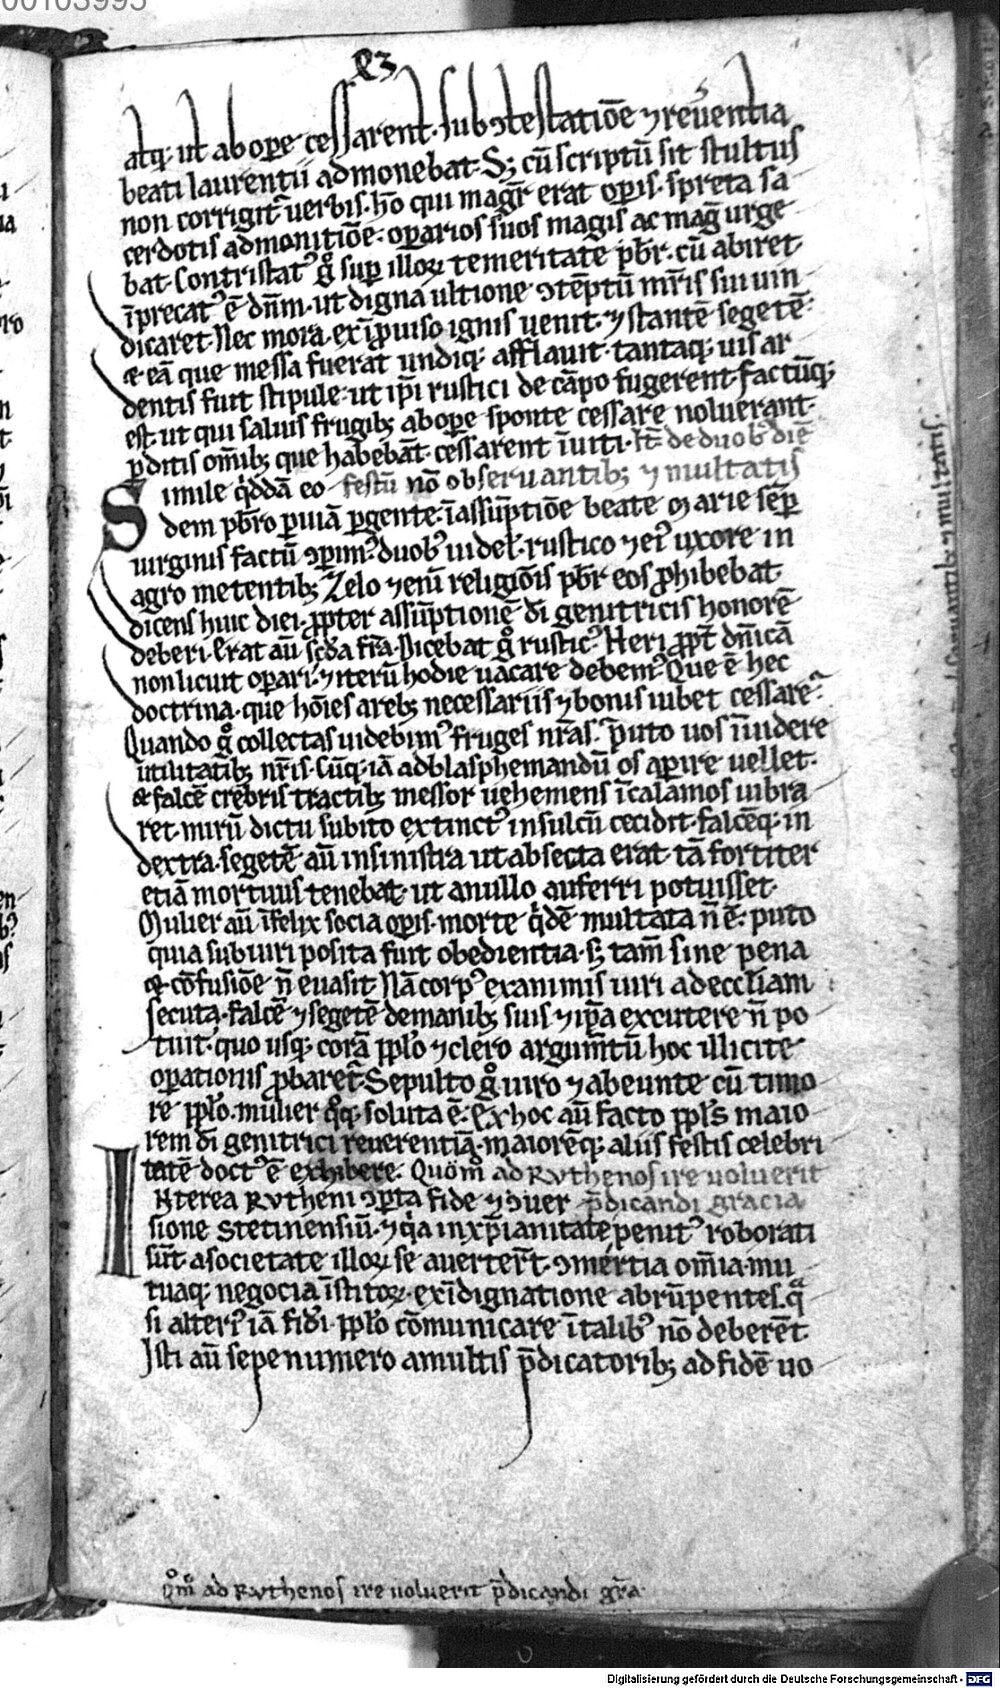 00103995
atq; ut ab oꝑe cessarent. sub ꝯtestatiōe ⁊ reũentia
beati laurentii admonebat. Sꝫ cū scriptū sit stultus
non corrigitᷣ uerbis. hō qui magr̄ erat oꝑis. spreta sa
cerdotis admonitiōe. oꝑarios suos magis ac mag̅ urge
bat. Contristatꝰ gͦ suꝑ illoꝝ temeritate pb̄r. cū abiret
īprecatꝰ ē dn̄m. ut digna ultione ꝯtēptū mr̄is sui uin
dicaret. Nec mora. ex īprouiso ignis uenit. ⁊ stantē segetē.
et eā que messa fuerat undiq; afflauit. tantaq; uis ar
dentis fuit stipule. ut ip̄i rustici de cāpo fugerent. factūq;
est. ut qui saluis frugibꝫ ab oꝑe sponte cessare noluerant.
ꝑditis om̄ibꝫ que habebāt. cessarent īuiti. Itē de duobꝰ diē
Simile qͥddā eo festū nō obseruantibꝫ ⁊ multatis
dem pb̄ro ꝑ uiā ꝑgente. ī assūptiōe beate Marie sēꝑ
uirginis factū ꝯꝑimꝰ. duobꝰ uidel. rustico ⁊ eiꝰ uxore in
agro metentibꝫ. Zelo ⁊ enī religiōis pb̄r eos ꝓhibebat.
dicens huic diei. ꝓpter assūptionē dī genitricis honorē
deberi. Erat aū sc̄da fr̄a. Dicebat gͦ rusticꝰ. Heri ꝓpt̄ dn̄icā
non licuit oꝑari. ⁊ iterū hodie uacare debemꝰ. Que ē hec
doctrina. que hōies a rebꝫ necessariis ⁊ bonis iubet cessare.
Quando gͦ collectas uidebimꝰ fruges nr̄as. puto uos īuidere
utilitatibꝫ nr̄is. Cūq; iā ad blasphemandū os aꝑire uellet.
et falcē crebris tractibꝫ messor uehemens ī calamos uibra
ret. mirū dictu subito extinctꝰ in sulcū cecidit. falcēq; in
dextra. segetē aū in sinistra ut absecta erat. tā fortiter
etiā mortuus tenebat. ut a nullo auferri potuisset.
Mulier aū īfelix socia oꝑis. morte qͥdē multata n̄ ē. puto
quia sub iuri posita fuit obedientia. sꝫ tam̄ sine pena
et cōfusiōe n̄ euasit. Nā corpꝰ exanimis uiri ad eccl̄iam
secuta. falcē ⁊ segetē de manibꝫ suis ⁊ ip̄a excutere n̄ po
tuit. quo usq; corā pp̄lo ⁊ clero argum̄tū hoc illicite
oꝑationis ꝓbaret᷑. Sepulto gͦ uiro ⁊ abeunte cū timo
re pp̄lo. mulier qͦq; soluta ē. Ex hoc aū facto pp̄ls maio
rem dī genitrici reuerentiā. maiorēq; aliis festis celebri
tatē doctꝰ ē exhibere. Quōm̄ ad Ruthenos ire uoluerit
Interea Rutheni ꝯꝑta fide ⁊ ꝯuer p̄dicandi gracia
sione Stetinensiū. ⁊ qͥa in xp̄ianitate penitꝰ roborati
sūt. a societate illoꝝ se auerter̄t. ꝯmertia om̄ia. mu
tuaq; negocia īstitoꝝ. ex īdignatione abrūpentes. qͣ
si alteriꝰ iā fidi. pp̄lo cōmunicare ī talibꝰ nō deberēt.
Isti aū sepenumero a multis p̄dicatoribꝫ ad fidē uo
qͦm̄ ad Ruthenos ire uoluerit p̄dicandi gr̄a
obseruantibꝫ ⁊ multatis.
Digitalisierung gefördert durch die Deutsche Forschungsgemeinschaft - DFG